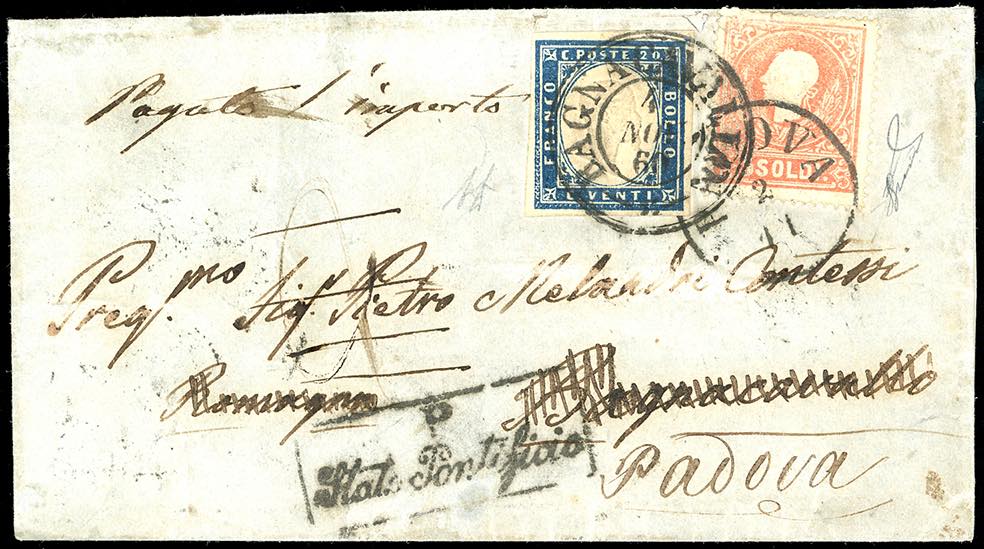 Pagato l'importo
C. POSTE 20
FRANCO
BOLLO
C. VENTI
BAGNACAVALLO
NOV
61
OVA
SOLDI
Preg.mo Sig. Pietro
Romagna
Bagnacavallo
P
Stato Pontificio
Padova